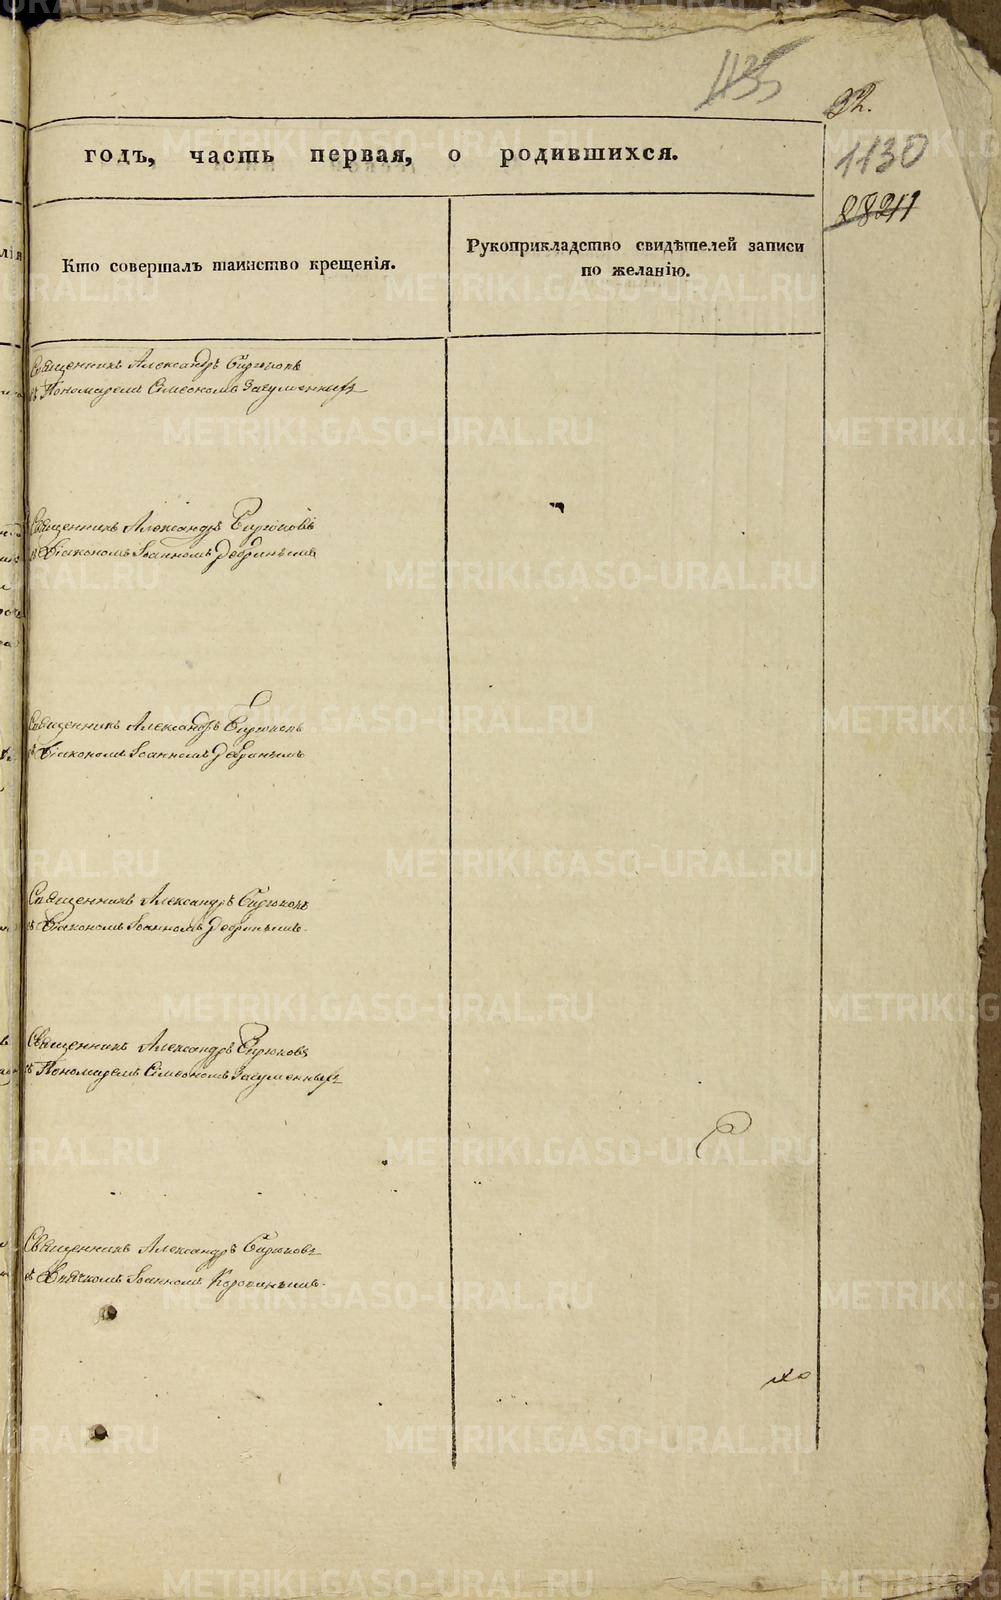 1135
32.
годъ, часть первая, о родившихся.
1130
Кто совершалъ таинство крещенія.
Рукоприкладство свидѣтелей записи
по желанію.
Священникъ Александръ Бирюковъ
съ Пономаремъ Симеономъ Загуменных
Священникъ Александръ Бирюковъ
съ Діакономъ Іоанномъ
Священникъ Александръ Бирюковъ
съ Діакономъ Іоанномъ
Священникъ Александръ Бирюковъ
съ Діакономъ Іоанномъ
Священникъ Александръ Бирюковъ
съ Пономаремъ Симеономъ Загуменных
Священникъ Александръ Бирюковъ
съ Дьячкомъ Іоанномъ
METRIKI.GASO-URAL.RU